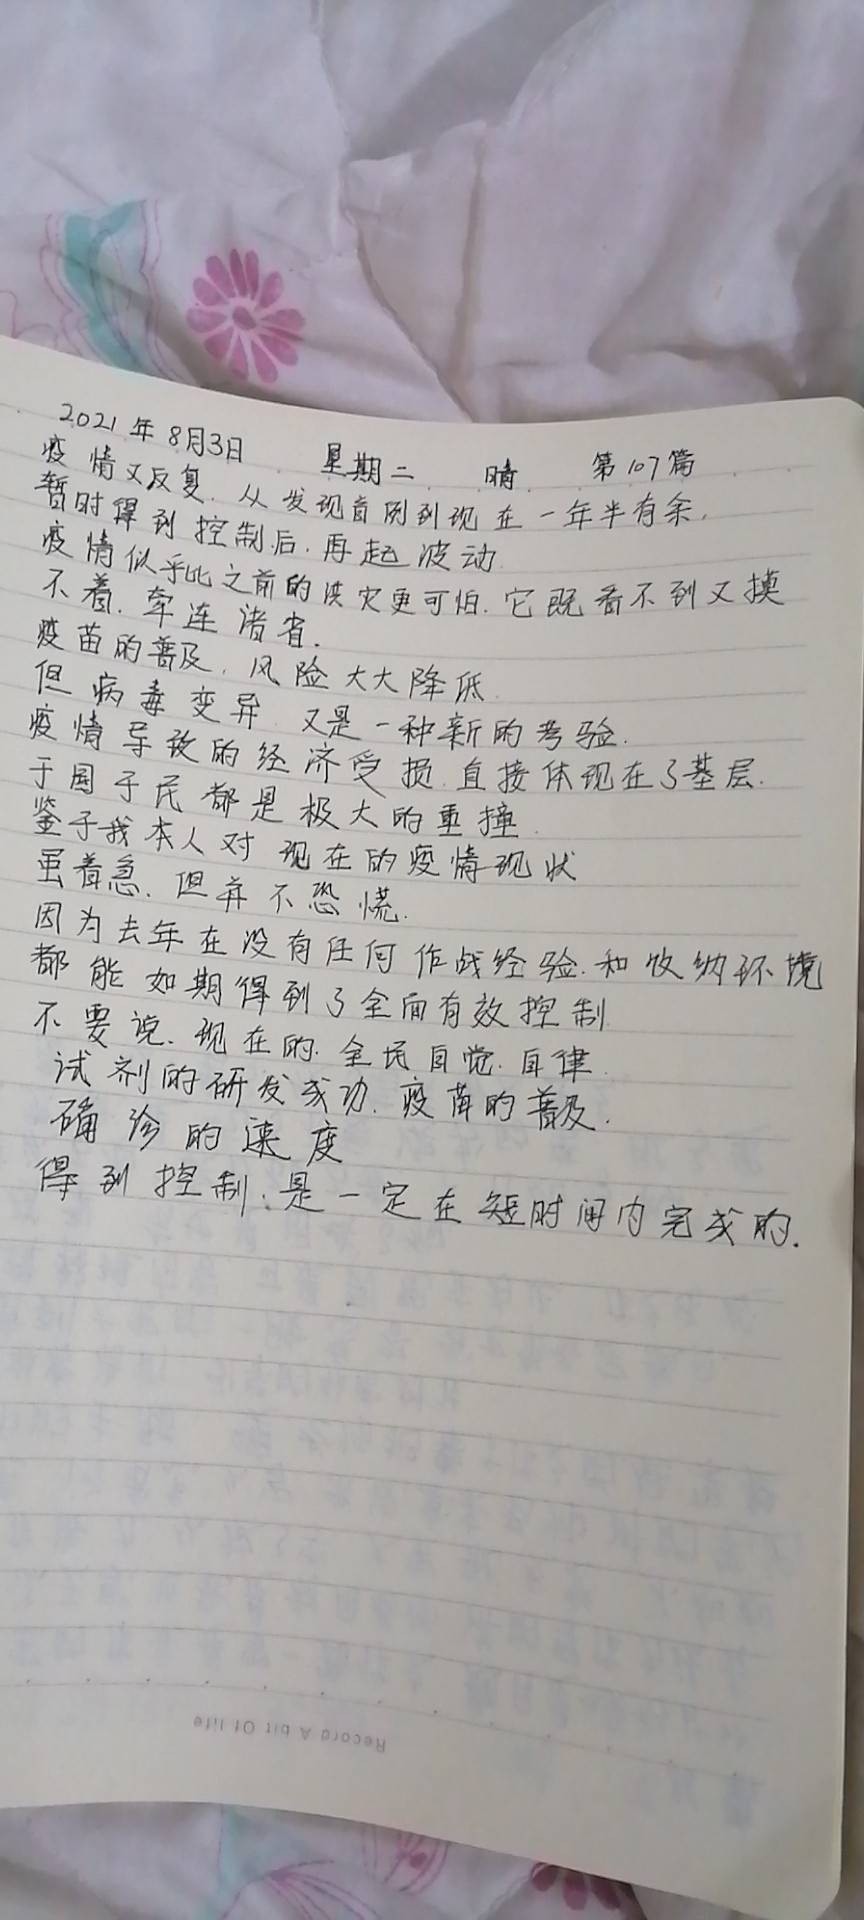 2021年8月3日 星期二 晴 第107篇
疫情又反复.从发现首例到现在一年半有余.
暂时得到控制后.再起波动.
疫情似乎比之前的洪灾更可怕.它既看不到又摸
不着.牵连诸省.
疫苗的普及.风险大大降低.
但病毒变异.又是一种新的考验.
疫情导致的经济受损.直接体现在了基层.
于国于民都是极大的重撞.
鉴于我本人对现在的疫情现状
虽着急.但并不恐慌.
因为去年在没有任何作战经验.和收纳环境
都能如期得到了全面有效控制.
不要说.现在的.全民自觉.自律.
试剂的研发成功.疫苗的普及.
确诊的速度
得到控制.是一定在短时间内完成的.
Record A bit Of life